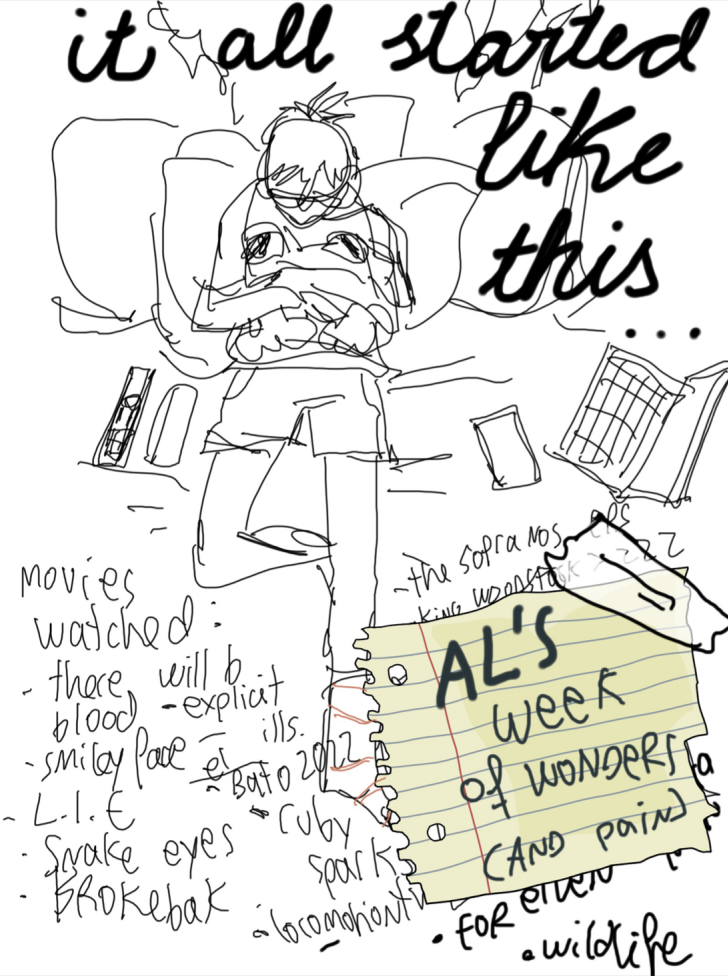 it all started
like
this
...
movies
watched:
- there will b
blood
- smiley face
- L.I.E
- Snake eyes
- BROKebaK
- explicit
ills.
- Bato 2012
- ruby
spark
- locomotion
- the sopranos eps
king woodstock
AL'S
week
of WONDERS
(AND pain)
• FOR
• wildlife